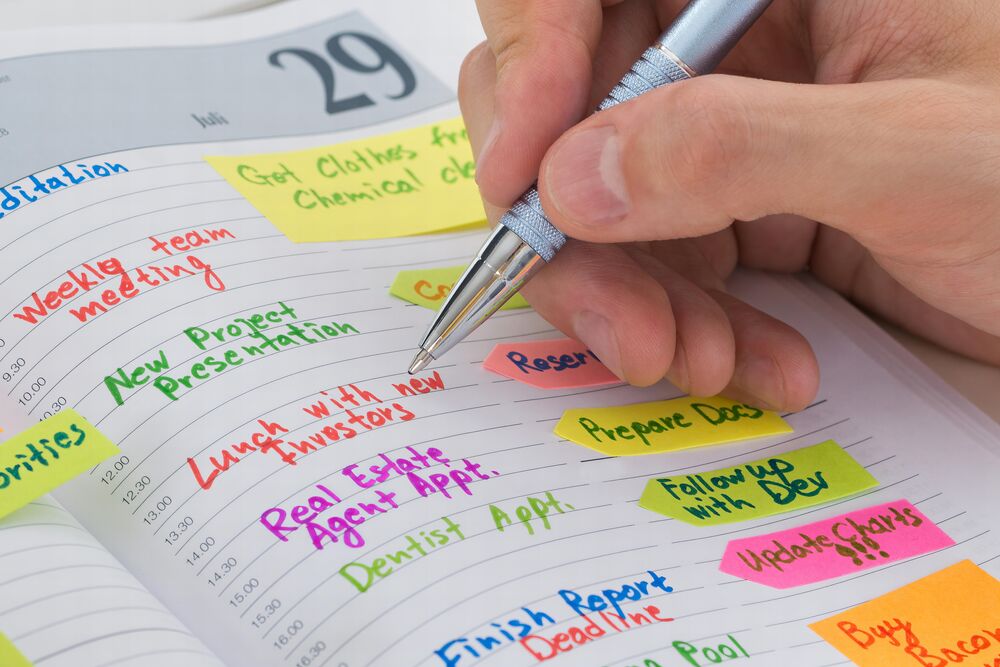 29
Juli
Get Clothes
Chemical
Weekly team
meeting
New Project
Presentation
Lunch with new
Investors
Prepare Docs
Real Estate
Agent Appt.
Follow up
with Dev
Dentist Appt.
Update Charts
!!!
Finish Report
Deadline
Buy
Bacon
Pool
9.30
10.00
10.30
12.00
12.30
13.00
13.30
14.00
14.30
15.00
15.30
16.00
16.30